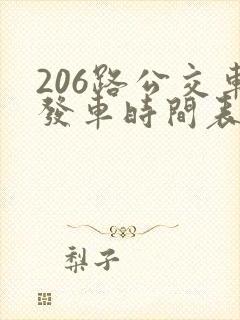 206路公交車
發車時間表
梨子